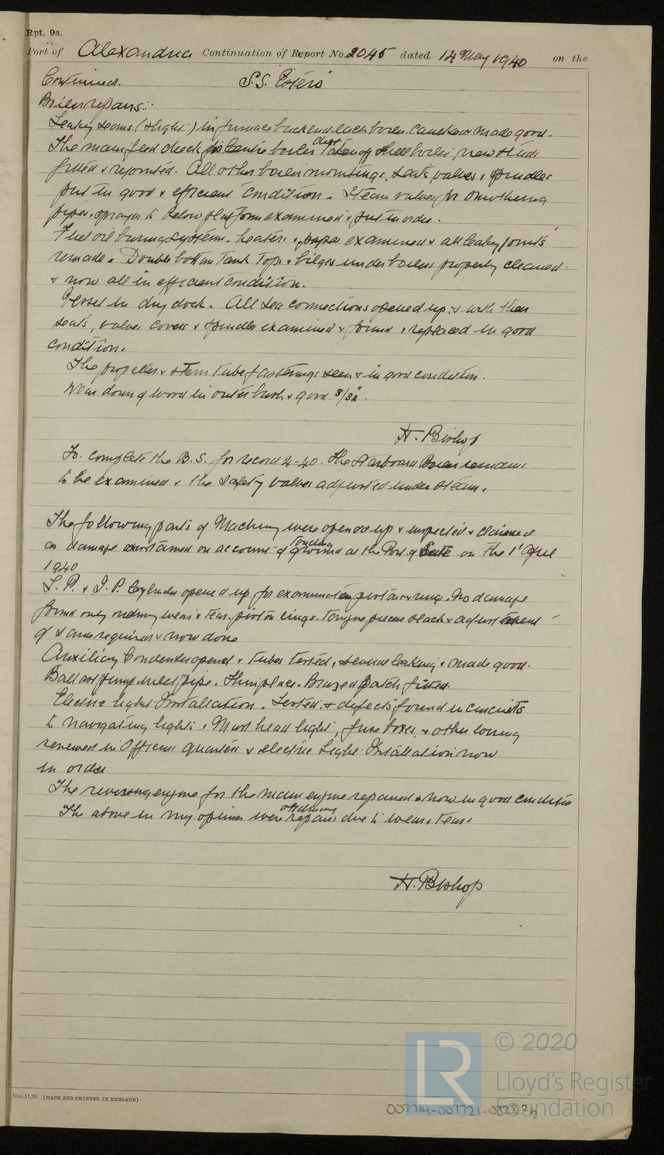 Rpt. 9a.
Port of Alexandria Continuation of Report No. 2045 dated 14 May 1940 on the
Continued. S.S. "Estero"
Boiler repairs:-
Leaky seams (slight) in furnace back end each boiler. Caulked & made good.
The main feed check for centre boiler chest taken off shell boiler, new studs
fitted & rejointed. All other boiler mountings, seats, valves & spindles
put in good & efficient condition. Steam valves for smothering
pipes & sprays to below platform examined & put in order.
Fuel oil burning system, heaters & pipes examined & all leaky joints
remade. Double bottom Tank Tops & bilges under boilers properly cleaned
& now all in efficient condition.
Vessel in dry dock. All sea connections opened up & with their
seats, valve covers & spindles examined & found & replaced in good
condition.
The propeller & stern tube fastenings seen & in good condition.
Wear down of wood in outer bush & good 3/32.
H. Bishop
To complete the B.S. for record 4-40. The Starboard Boiler remains
to be examined & the safety valves adjusted under steam.
The following parts of Machinery were opened up & inspected & claimed
as damage sustained on account of touching ground at the Port of on the 1st April
1940
L.P. & I.P. Cylinder opened up for examination piston & rings. No damage
found only ordinary wear & tear, piston rings. Tongue pieces slack & adjustment
of same required & now done
Auxiliary Condenser opened & Tubes Tested, several leaking & made good.
Ballast pump inlet pipe. Thin place. Brazed patch fitted.
Electric light Installation. Tested & defects found in circuits
to navigating lights. Mast head light, fuse boxes, & other wiring
renewed in Officers quarters & electric Light Installation now
in order
The reversing engine for the main engine repaired & now in good condition
The above in my opinion were ordinary repairs due to wear & tear.
H. Bishop
(MADE AND PRINTED IN ENGLAND)
LR © 2020
Lloyd's Register
Foundation